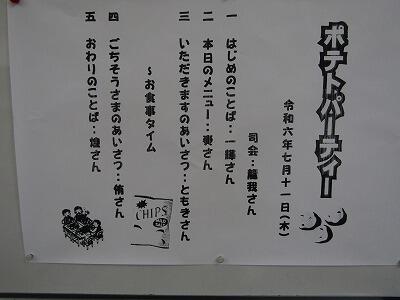 ポテトパーティー
令和六年七月十一日(木)
司会:龍我さん
一 はじめのことば:一輝さん
二 本日のメニュー:奏さん
三 いただきますのあいさつ:ともきさん
~お食事タイム
四 ごちそうさまのあいさつ:侑さん
五 おわりのことば:煌さん
CHIPS